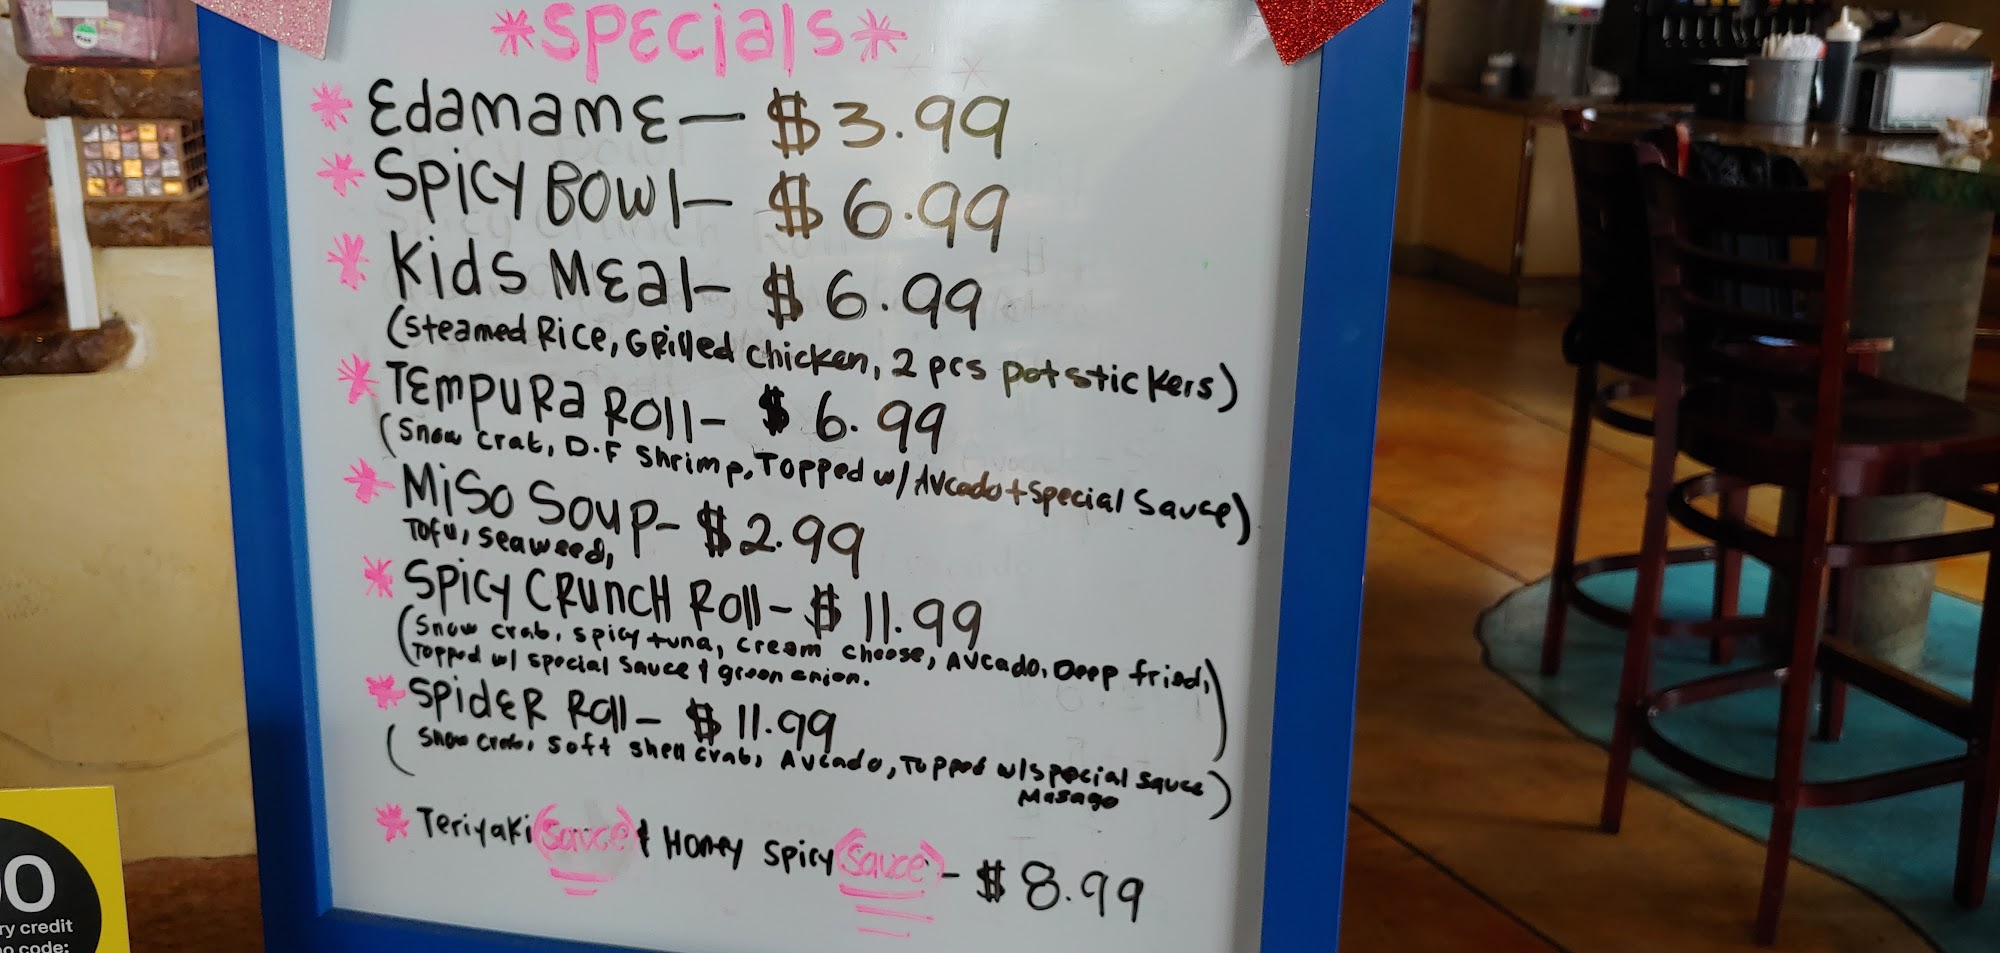 *Specials*
* Edamame - $3.99
* Spicy Bowl - $6.99
* Kids Meal - $6.99
(Steamed Rice, Grilled chicken, 2 pcs potstickers)
* Tempura Roll - $6.99
(Snow crab, D.F Shrimp, Topped w/ Avcado + Special Sauce)
* Miso Soup - $2.99
Tofu, Seaweed,
* Spicy Crunch Roll - $11.99
(Snow crab, spicy tuna, cream cheese, Avcado, Deep fried,
Topped w/ special sauce & green onion.)
* Spider Roll - $11.99
(Snow crab, soft shell crab, Avcado, Topped w/ special sauce
Masago)
* Teriyaki (sauce) & Honey Spicy (sauce) - $8.99
0
ry credit
o code: